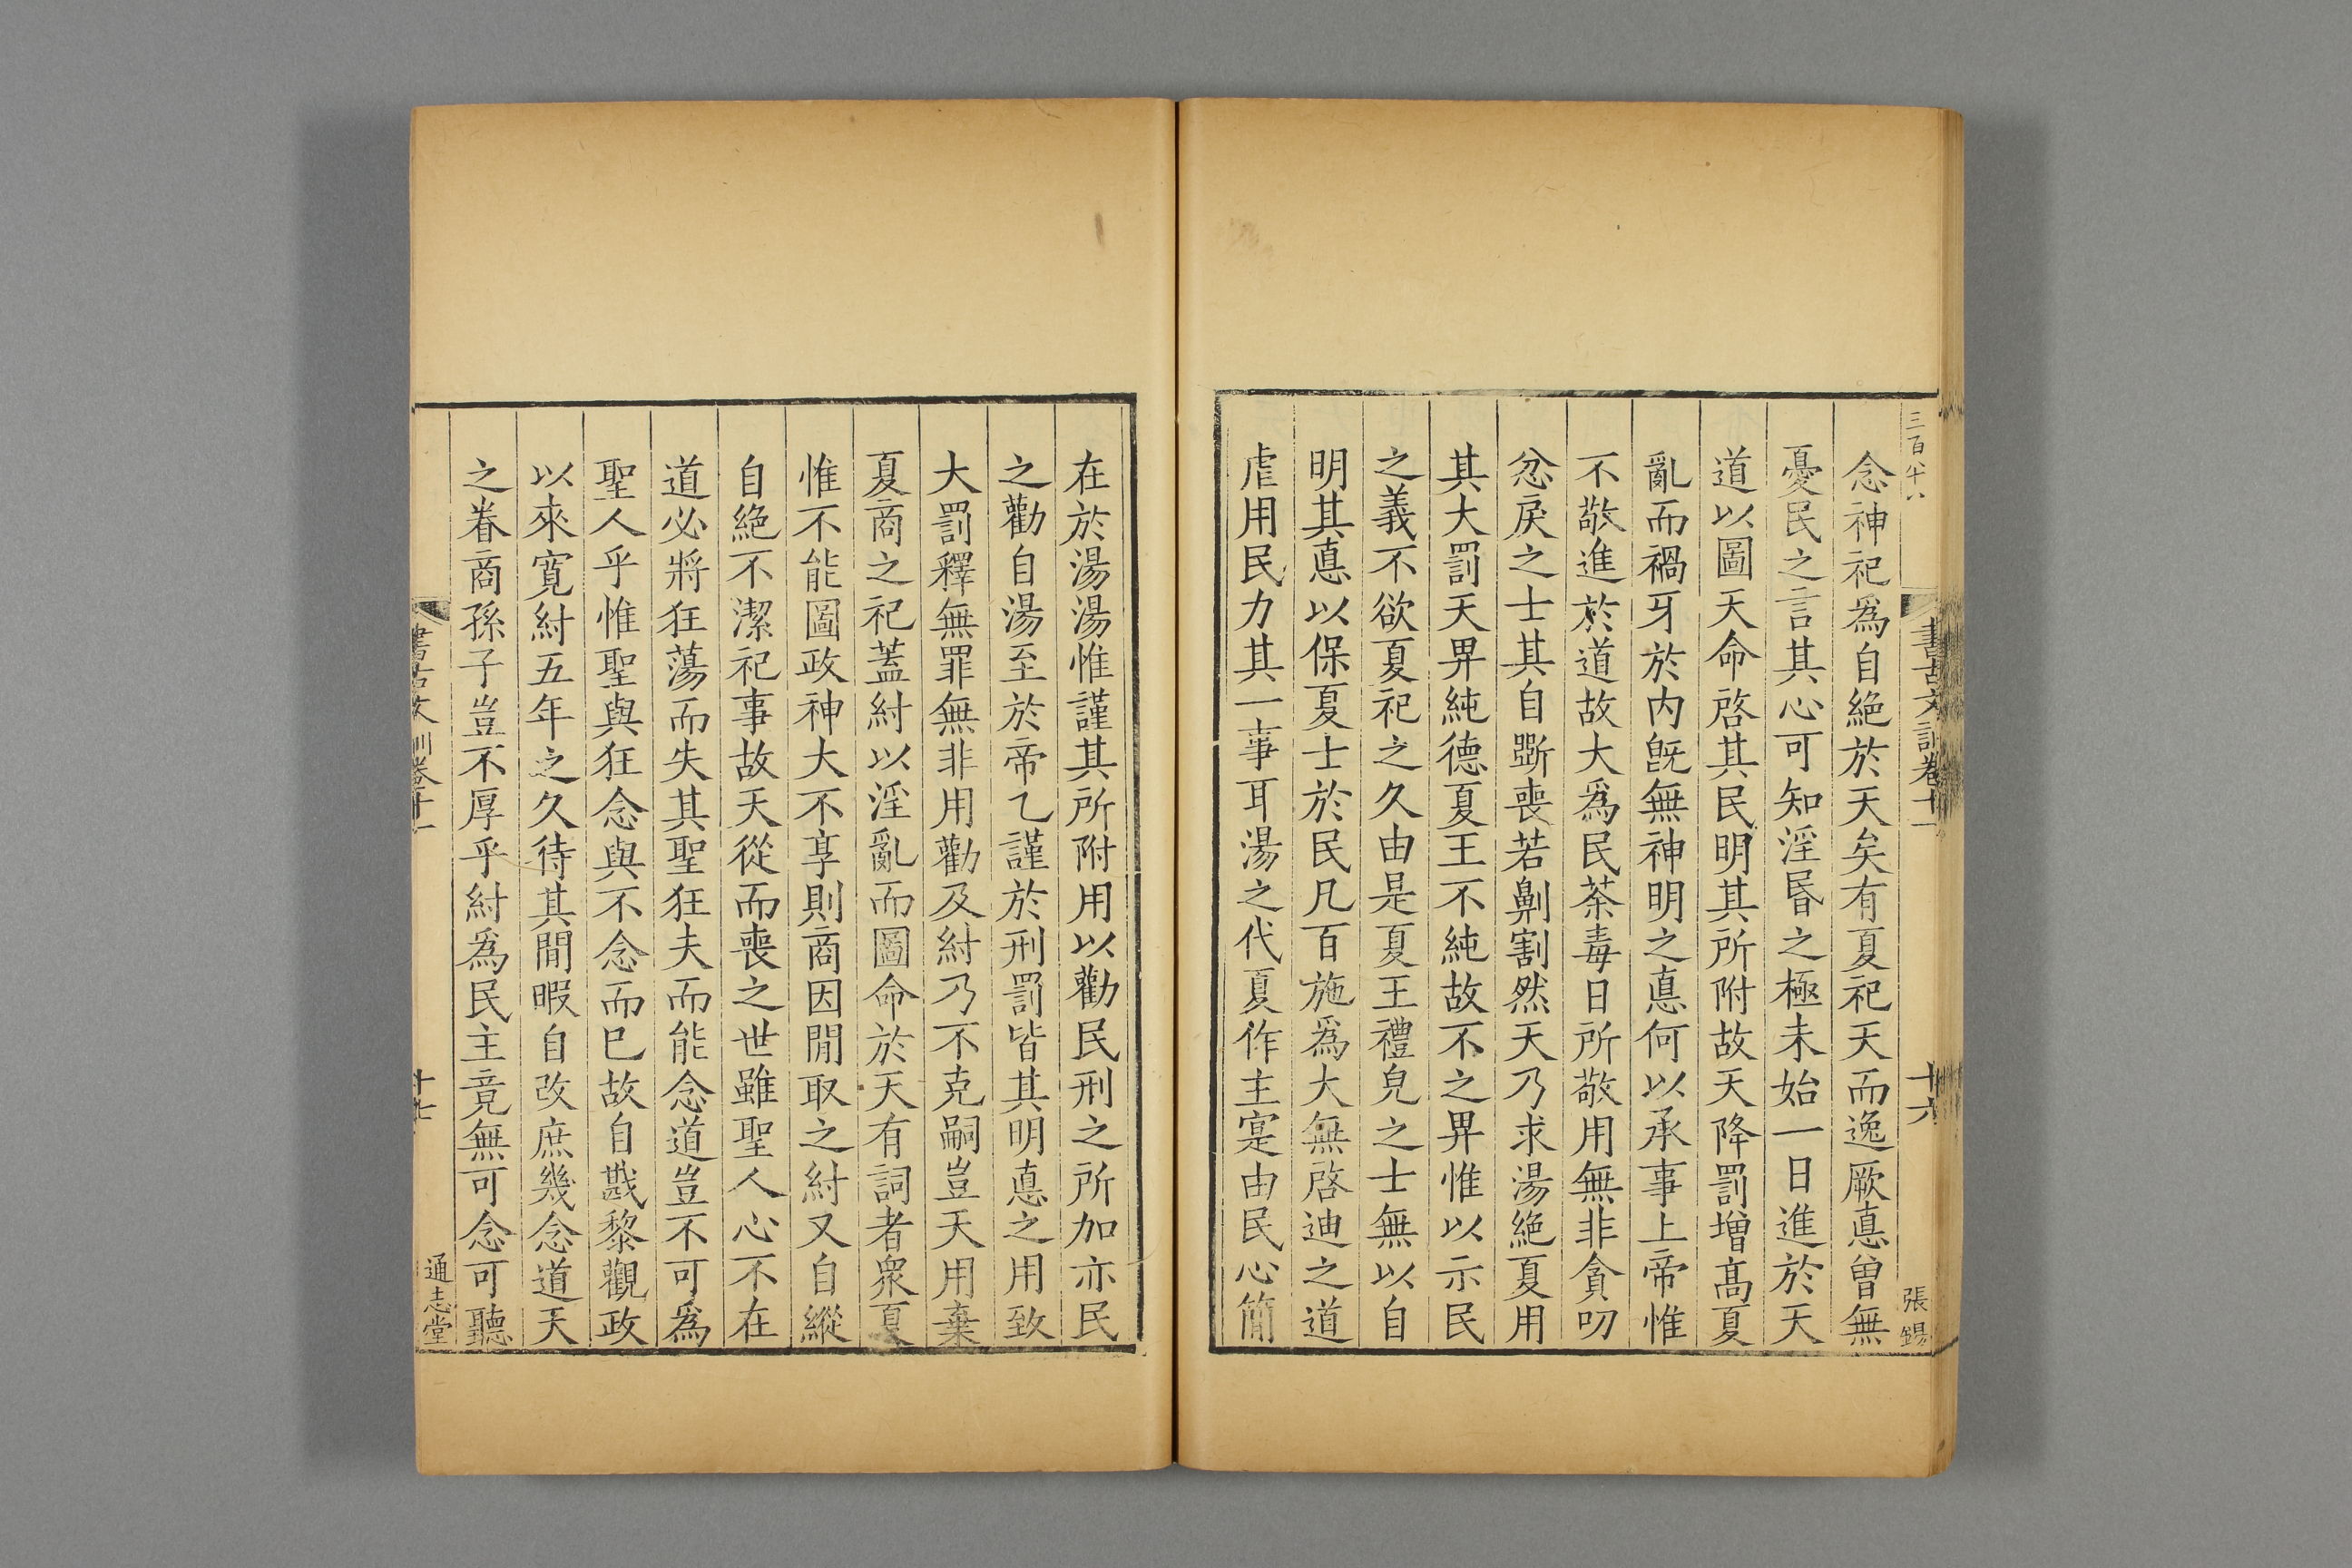 書古文訓卷十一
十六
張錫
念神祀爲自絶於天矣有夏祀天而逸厥悳曾無
憂民之言其心可知淫昬之極未始一日進於天
道以圖天命啓其民明其所附故天降罰增髙夏
亂而禍牙於内旣無神明之悳何以承事上帝惟
不敬進於道故大爲民荼毒日所敬用無非貪叨
忿戾之士其自斲喪若劓割然天乃求湯絶夏用
其大罰天畀純德夏王不純故不之畀惟以示民
之義不欲夏祀之久由是夏王禮皃之士無以自
明其悳以保夏士於民凡百施爲大無啓迪之道
虐用民力其一事耳湯之代夏作主寔由民心簡
在於湯湯惟謹其所附用以勸民刑之所加亦民
之勸自湯至於帝乙謹於刑罰皆其明悳之用致
大罰釋無罪無非用勸及紂乃不克嗣豈天用棄
夏商之祀蓋紂以淫亂而圖命於天有詞者衆夏
惟不能圖政神大不享則商因閒取之紂又自縱
自絶不潔祀事故天從而喪之世雖聖人心不在
道必將狂蕩而失其聖狂夫而能念道豈不可爲
聖人乎惟聖與狂念與不念而巳故自戡黎觀政
以來寬紂五年之久待其閒暇自改庶幾念道天
之眷商孫子豈不厚乎紂爲民主竟無可念可聽
書古文訓卷十一
十七
通志堂